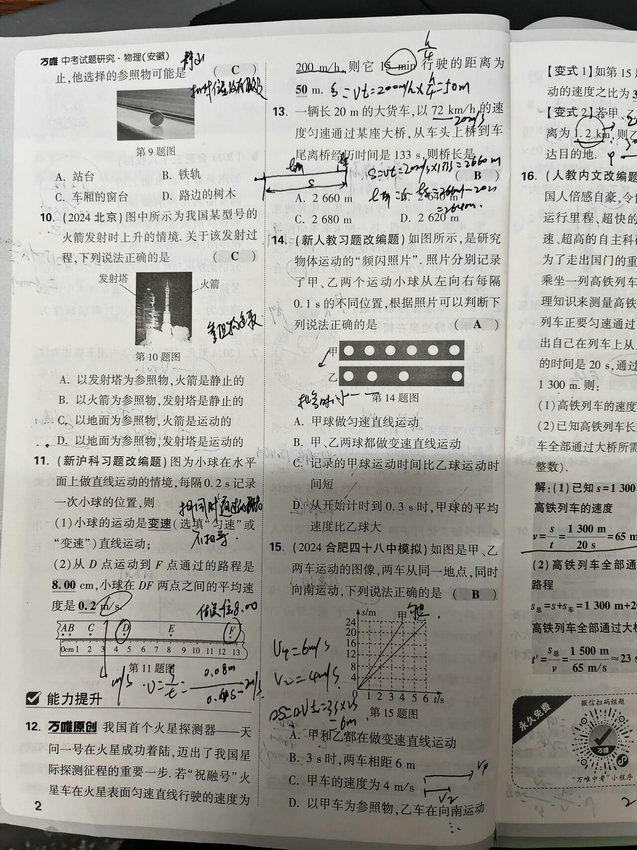 万唯 中考试题研究·物理(安徽)
止,他选择的参照物可能是 ( C )
第9题图
A. 站台 B. 铁轨
C. 车厢的窗台 D. 路边的树木
10. (2024 北京)图中所示为我国某型号的
火箭发射时上升的情境. 关于该发射过
程,下列说法正确的是 ( C )
发射塔 火箭
第10题图
A. 以发射塔为参照物,火箭是静止的
B. 以火箭为参照物,发射塔是静止的
C. 以地面为参照物,火箭是运动的
D. 以地面为参照物,发射塔是运动的
11. (新沪科习题改编题)图为小球在水平
面上做直线运动的情境,每隔0.2 s记录
一次小球的位置,则
(1)小球的运动是变速(选填“匀速”或
“变速”)直线运动;
不相等
(2)从 D 点运动到 F 点通过的路程是
8.00 cm,小球在 DF 两点之间的平均速
度是0.2 m/s.
AB C D E F
0cm 1 2 3 4 5 6 7 8 9 10 11 12 13
第11题图
能力提升
12. 万唯原创 我国首个火星探测器——天
问一号在火星成功着陆,迈出了我国星
际探测征程的重要一步. 若“祝融号”火
星车在火星表面匀速直线行驶的速度为
2
200 m/h,则它 15 min 行驶的距离为
50 m. s=vt=200m/h×h/4=50m
13. 一辆长 20 m 的大货车,以 72 km/h 的速
20m/s
度匀速通过某座大桥,从车头上桥到车
尾离桥经历时间是 133 s,则桥长是
s=vt=20m/s×133s=2660m
( B )
A. 2 660 m
C. 2 680 m D. 2 620 m
14. (新人教习题改编题)如图所示,是研究
物体运动的“频闪照片”. 照片分别记录
了甲、乙两个运动小球从左向右每隔
0.1 s 的不同位置,根据照片可以判断下
列说法正确的是 ( A )
甲
乙
第14题图
A. 甲球做匀速直线运动
B. 甲、乙两球都做变速直线运动
C. 记录的甲球运动时间比乙球运动时
间短
D. 从开始计时到 0.3 s 时,甲球的平均
速度比乙球大
15. (2024 合肥四十八中模拟)如图是甲、乙
两车运动的图像,两车从同一地点,同时
向南运动,下列说法正确的是 ( B )
s/m 甲
24
20
16
12
8
4
0 1 2 3 4 5 6 t/s
第15题图
A. 甲和乙都在做变速直线运动
B. 3 s时,两车相距 6 m
C. 甲车的速度为 4 m/s
D. 以甲车为参照物,乙车在向南运动
【变式 1】如第 15
动的速度之比为 3
【变式 2】若甲、
离为 1.2 km,则
达目的地.
16. (人教内文改编
国人倍感自豪,令
运行里程、超快的
速、超高的自主科
为了走出国门的重
乘坐一列高铁列车
理知识来测量高铁
列车正要匀速通过
出自己在列车上从
的时间是 20 s,通过
1 300 m. 则:
(1)高铁列车的速度
(2)已知高铁列车长
车全部通过大桥所需
整数).
解:(1)已知 s=1 300
高铁列车的速度
v=s/t=1 300 m/20 s=65 m
(2)高铁列车全部通
路程
s总=s+s车=1 300 m+20
高铁列车全部通过大桥
t′=s总/v=1 500 m/65 m/s≈23 s
永久免费
微信扫码组题
万唯
“万唯中考”小程序